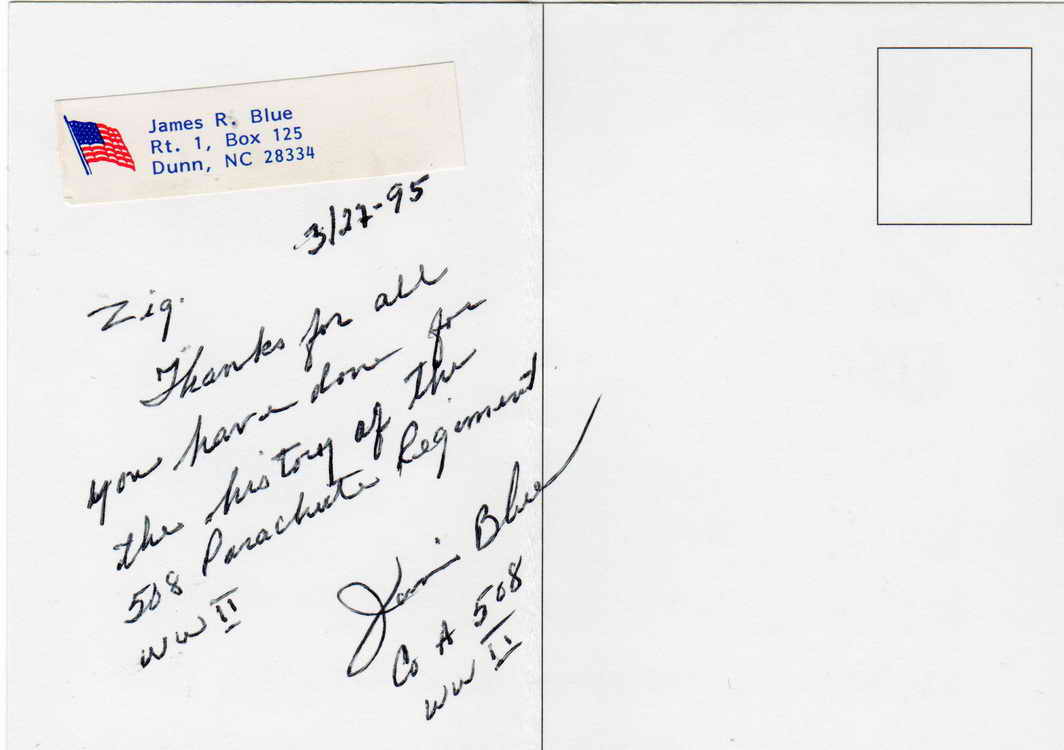 James R. Blue
Rt. 1, Box 125
Dunn, NC 28334
3/27-95
Zig.
Thanks for all
you have done for
the history of the
508 Parachute Regiment
WW II
James Blue
Co A 508
WW II